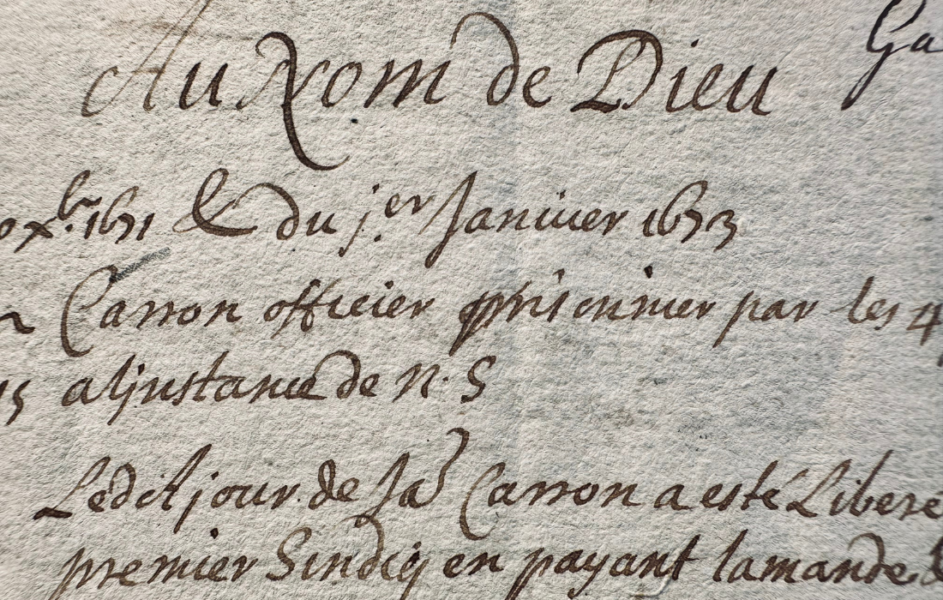 Au Nom de Dieu
Ga
xbr. 1671 & du j.er Janvier 1673
Carron officier prisonnier par les 4
15 a ljnstance de N. S
Ledit jour de Ja Carron a esté Libere
premier Sindiq en payant lamande